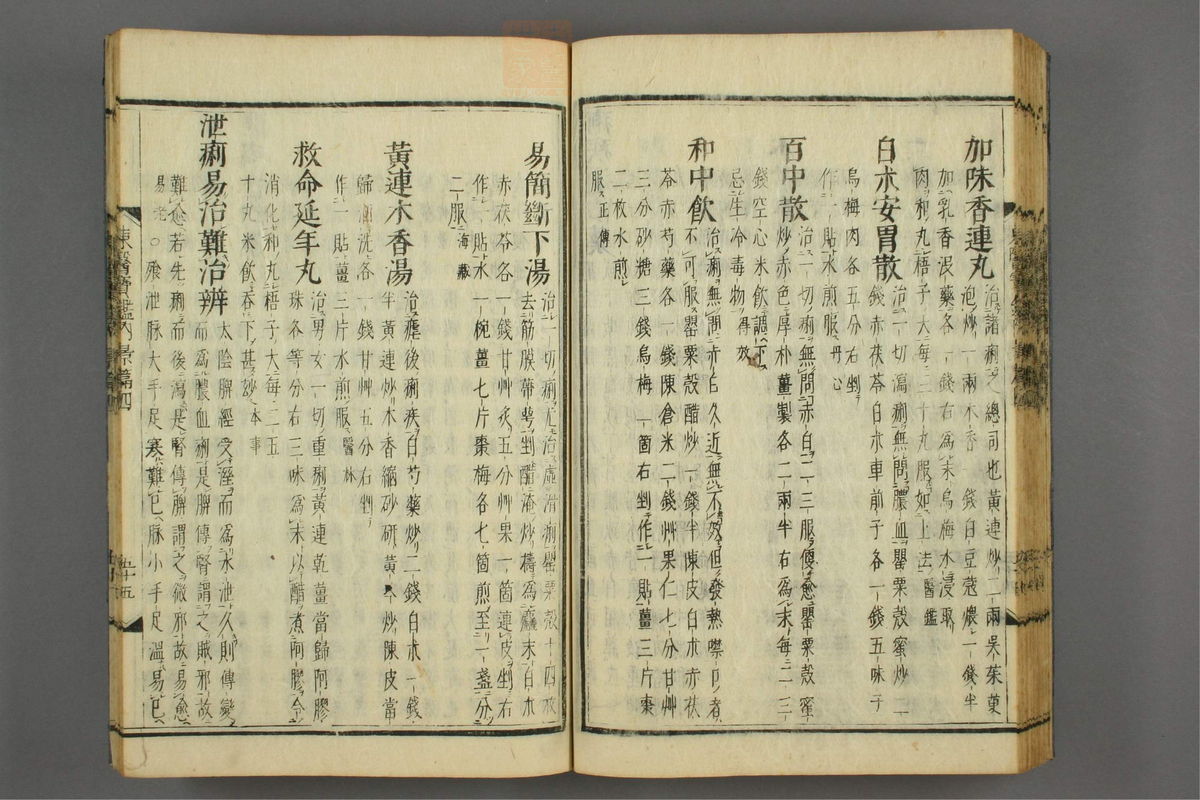 加味香連丸治諸痢之總司也黃連炒二兩吳茱萸
泡炒一兩木香一錢白豆蔻煨一錢半
加乳香沒藥各一錢右爲末烏梅水浸取
肉和丸梧子大每三十丸服如上法醫鑑
白朮安胃散治一切瀉痢無問膿血罌粟殼蜜炒二
錢赤茯苓白朮車前子各一錢五味子
烏梅肉各五分右剉
作一貼水煎服丹心
百中散治一切痢無問赤白一二三服便愈罌粟殼蜜
炒赤色厚朴薑製各二兩半右爲末每二三
錢空心米飮調下
忌生冷毒物得效
和中飮治痢無問赤白久近無不效但發熱噤口者
不可服罌粟殼醋炒一錢半陳皮白朮赤茯
苓赤芍藥各一錢陳倉米二錢艸果仁七分甘艸
三分砂糖三錢烏梅一箇右剉作一貼薑三片棗
二枚水煎
服正傳
易簡斷下湯治一切痢尤治虛滑痢罌粟殼十四枚
去筋膜帶萼剉醋淹炒擣爲麤末白朮
赤茯苓各一錢甘艸炙五分艸果一箇連皮剉右
作一貼水一椀薑七片棗梅各七箇煎至一盞分
二服海藏
黃連木香湯治瘧後痢疾白芍藥炒二錢白朮一錢
半黃連炒木香縮砂研黃芩炒陳皮當
歸酒洗各一錢甘艸五分右剉
作一貼薑三片水煎服醫林
救命延年丸治男女一切重痢黃連乾薑當歸阿膠
珠各等分右三味爲末以醋煮阿膠令
消化和丸梧子大每二五
十丸米飮呑下甚妙本事
泄痢易治難治辨太陰脾經受濕而爲水泄久則傳變
而爲膿血痢是脾傳腎謂之賊邪故
難愈若先痢而後瀉是腎傳脾謂之微邪故易愈
易老○飱泄脉大手足寒難已脉小手足溫易已
東醫寶鑑內景篇四
五十五